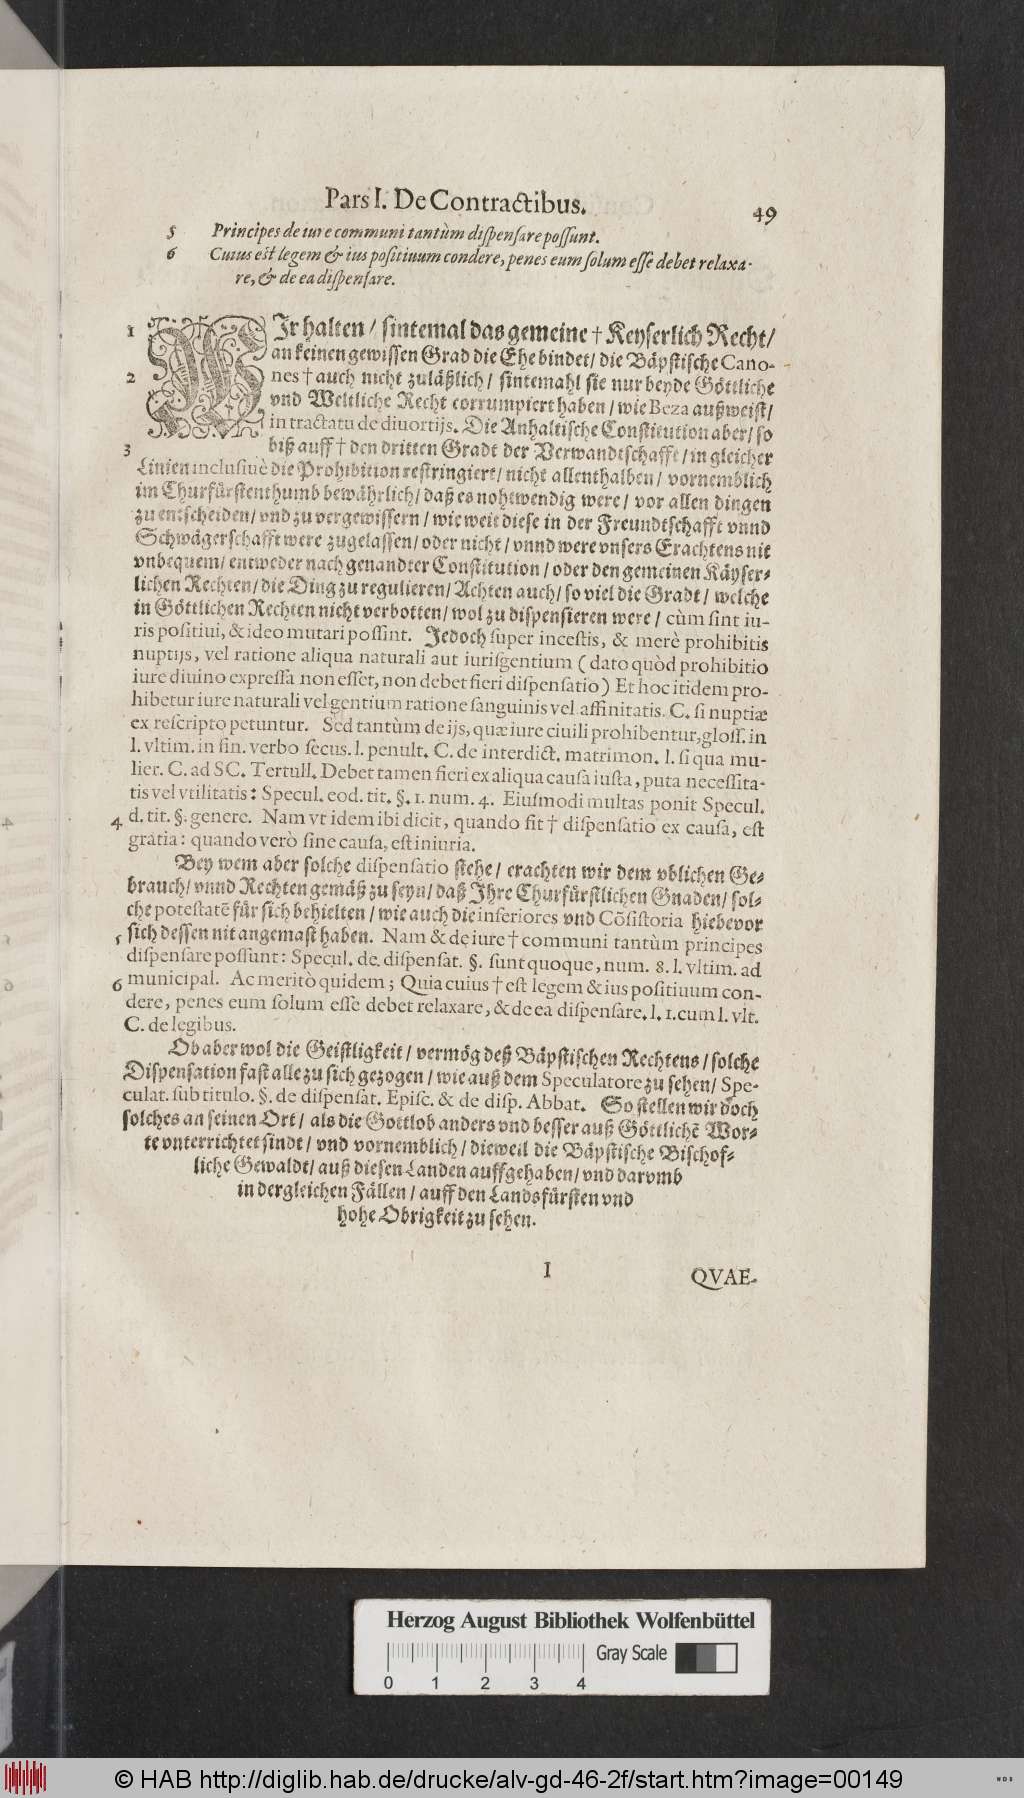 Pars I. De Contractibus.
49
5 Principes de iure communi tantùm dispensare possunt.
6 Cuius est legem & ius positiuum condere, penes eum solum esse debet relaxa-
re, & de ea dispensare.
1 WIr halten / sintemal das gemeine † Keyserlich Recht /
an keinen gewissen Grad die Ehe bindet / die Bäpstische Cano-
2 nes † auch nicht zuläßlich / sintemahl sie nur beyde Göttliche
vnd Weltliche Recht corrumpiert haben / wie Beza außweist /
in tractatu de diuortijs. Die Anhaltische Constitution aber / so
3 biß auff † den dritten Gradt der Verwandtschafft / in gleicher
Linien inclusiuè die Prohibition restringiert / nicht allenthalben / vornemblich
im Churfürstenthumb bewährlich / daß es nohtwendig were / vor allen dingen
zu entscheiden / vnd zu vergewissern / wie weit diese in der Freundtschafft vnnd
Schwägerschafft were zugelassen / oder nicht / vnnd were vnsers Erachtens nit
vnbequem / entweder nach genandter Constitution / oder den gemeinen Käyser-
lichen Rechten / die Ding zu regulieren / Achten auch / so viel die Gradt / welche
in Göttlichen Rechten nicht verbotten / wol zu dispensieren were / cùm sint iu-
ris positiui, & ideo mutari possint. Jedoch super incestis, & merè prohibitis
nuptijs, vel ratione aliqua naturali aut iurisgentium ( dato quòd prohibitio
iure diuino expressa non esset, non debet fieri dispensatio ) Et hoc itidem pro-
hibetur iure naturali vel gentium ratione sanguinis vel affinitatis. C. si nuptiæ
ex rescripto petuntur. Sed tantùm de ijs, quæ iure ciuili prohibentur, gloss. in
l. vltim. in fin. verbo secus. l. penult. C. de interdict. matrimon. l. si qua mu-
lier. C. ad SC. Tertull. Debet tamen fieri ex aliqua causa iusta, puta necessita-
tis vel vtilitatis: Specul. eod. tit. §. 1. num. 4. Eiusmodi multas ponit Specul.
4 d. tit. §. genere. Nam vt idem ibi dicit, quando fit † dispensatio ex causa, est
gratia: quando verò sine causa, est iniuria.
Bey wem aber solche dispensatio stehe / erachten wir dem vblichen Ge-
brauch / vnnd Rechten gemäß zu seyn / daß Ihre Churfürstlichen Gnaden / sol-
che potestatē für sich behielten / wie auch die inferiores vnd Cōsistoria hiebevor
5 sich dessen nit angemast haben. Nam & de iure † communi tantùm principes
dispensare possunt: Specul. de. dispensat. §. sunt quoque, num. 8. l. vltim. ad
6 municipal. Ac meritò quidem; Quia cuius † est legem & ius positiuum con-
dere, penes eum solum esse debet relaxare, & de ea dispensare. l. 1. cum l. vlt.
C. de legibus.
Ob aber wol die Geistligkeit / vermög deß Bäpstischen Rechtens / solche
Dispensation fast alle zu sich gezogen / wie auß dem Speculatore zu sehen / Spe-
culat. sub titulo. §. de dispensat. Episc. & de disp. Abbat. So stellen wir doch
solches an seinen Ort / als die Gottlob anders vnd besser auß Göttlichē Wor-
te vnterrichtet sindt / vnd vornemblich / dieweil die Bäpstische Bischof-
liche Gewaldt / auß diesen Landen auffgehaben / vnd darvmb
in dergleichen Fällen / auff den Landsfürsten vnd
hohe Obrigkeit zu sehen.
I
QVAE-
Herzog August Bibliothek Wolfenbüttel
Gray Scale
0 1 2 3 4
© HAB http://diglib.hab.de/drucke/alv-gd-46-2f/start.htm?image=00149